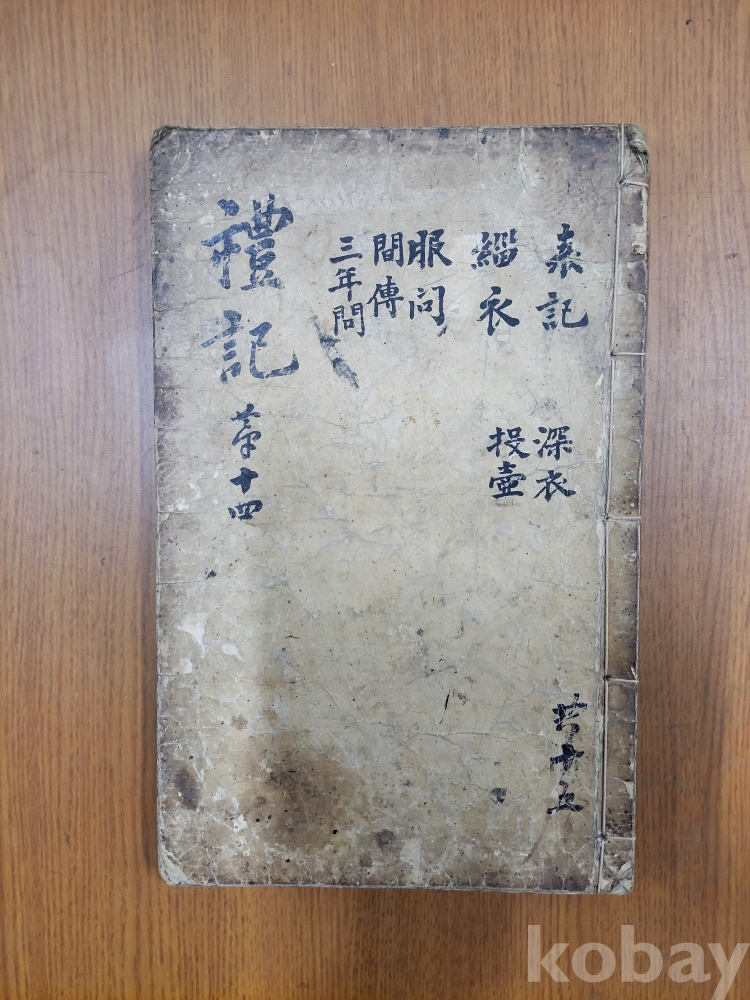 表記
緇衣
服问
間傳
三年問
深衣
投壺
禮記
苐十四
共十五
kobay